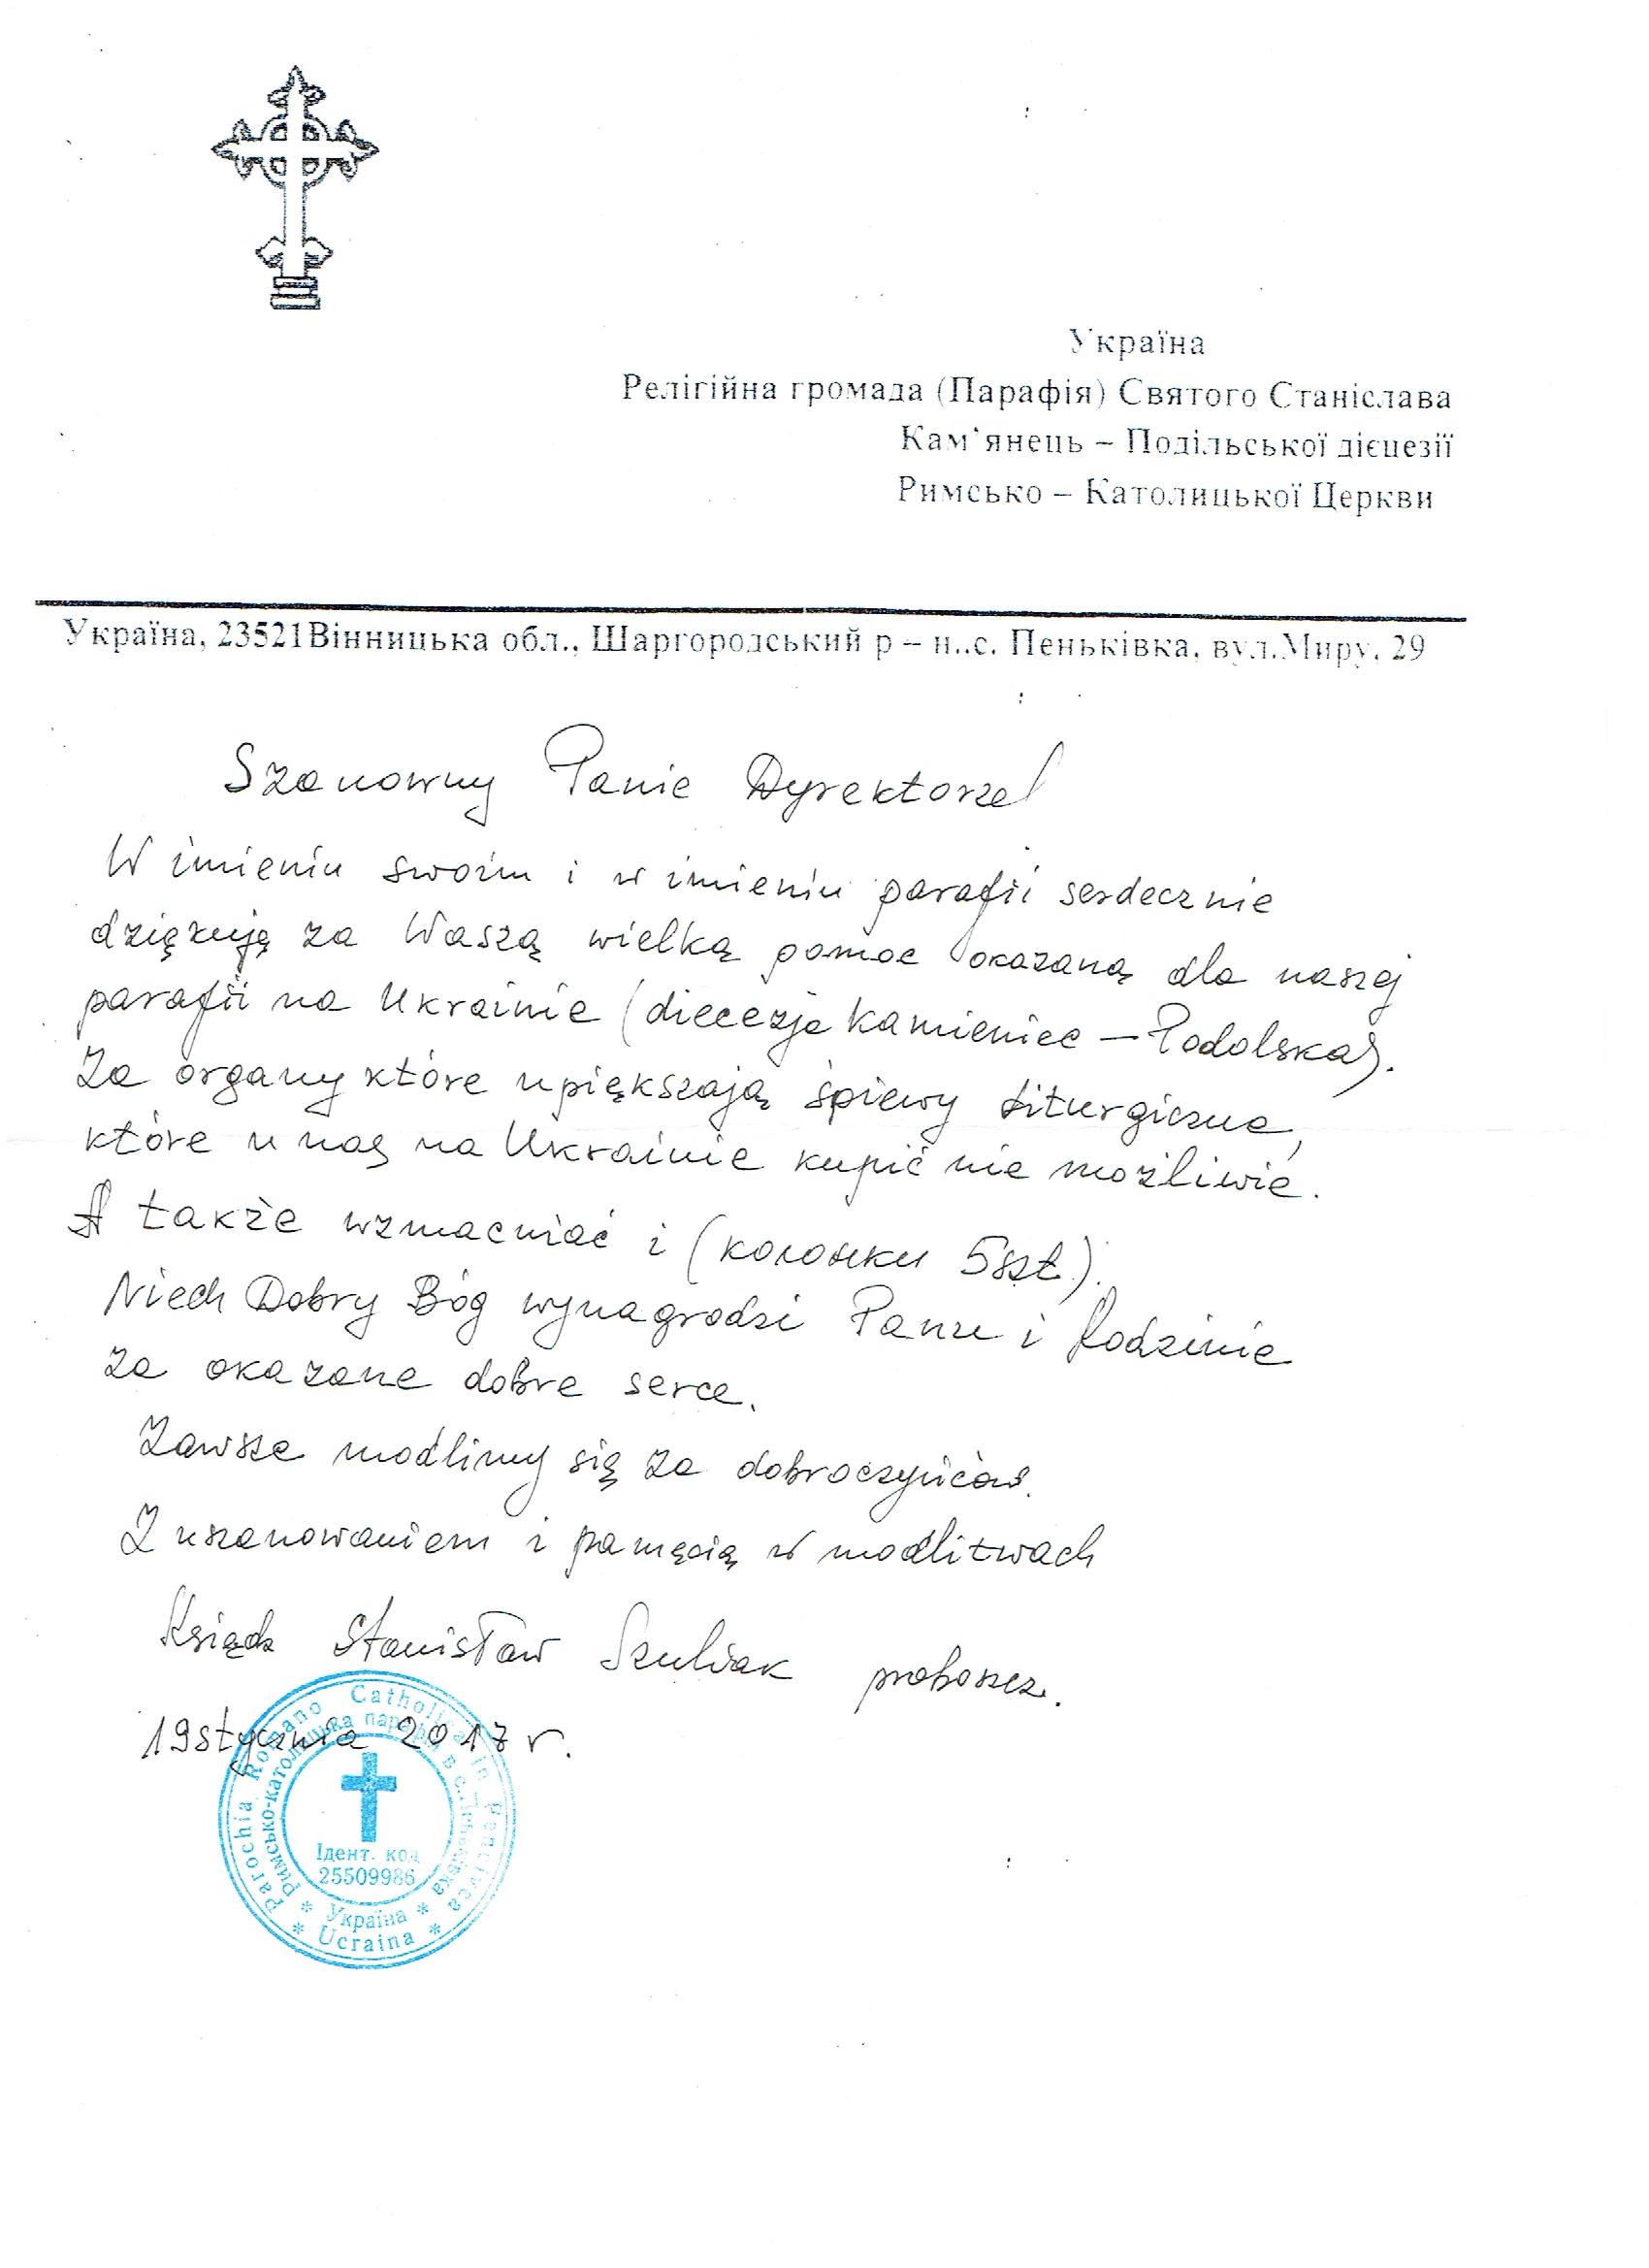 Україна
Релігійна громада (Парафія) Святого Станіслава
Кам‘янець – Подільської дієцезії
Римсько – Католицької Церкви
Україна, 23521Вінницька обл., Шаргородський р – н..с. Пеньківка, вул.Миру, 29
Szanowny Panie Dyrektorze!
W imieniu swoim i w imieniu parafii serdecznie
dziękuję za Waszą wielką pomoc okazaną dla naszej
parafii na Ukrainie (diecezja Kamieniec – Podolska).
Za organy które upiększają śpiewy liturgiczne,
które u nas na Ukrainie kupić nie możliwie.
A także wzmacniać i (5szt).
Niech Dobry Bóg wynagrodzi Panu i Rodzinie
za okazane dobre serce.
Zawsze modlimy się za dobroczyńców.
Z uszanowaniem i pamięcią w modlitwach
Ksiądz Stanisław proboszcz.
19 stycznia 2017 r.
Parochia Romano Catholica in Penkivca
Римсько-католицька парафія в с.
Ідент. код
25509986
* Україна *
* Ucraina *